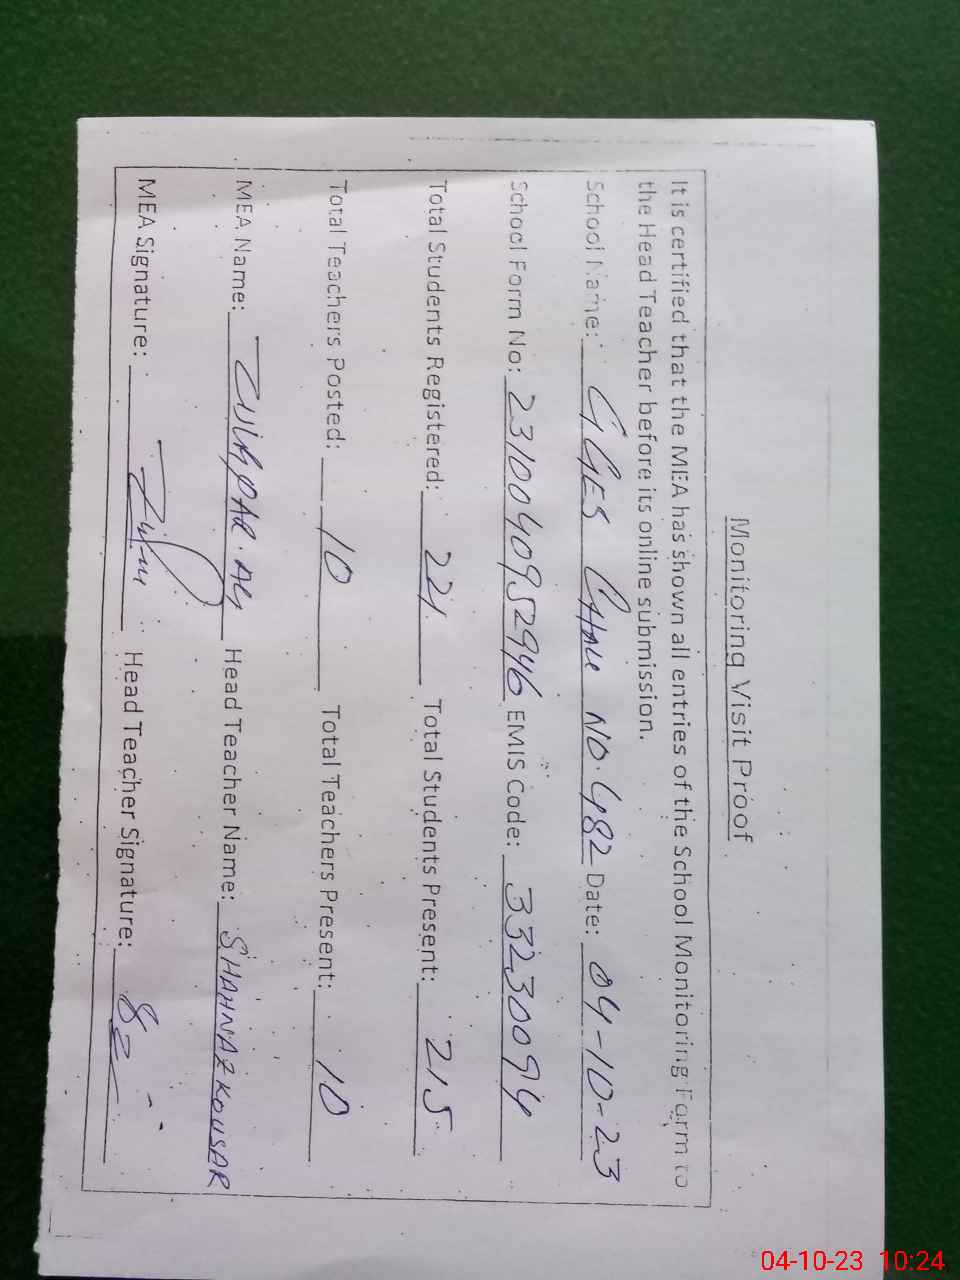 Monitoring Visit Proof
It is certified that the MEA has shown all entries of the School Monitoring Form to
the Head Teacher before its online submission.
School Name: GGES CHAK NO. 482 Date: 04-10-23
School Form No: 2310040952946 EMIS Code: 33230094
Total Students Registered: 221 Total Students Present: 215
Total Teachers Posted: 10 Total Teachers Present: 10
MEA Name: ALI Head Teacher Name: SHAHNAZ KOUSAR
MEA Signature: Head Teacher Signature:
04-10-23 10:24